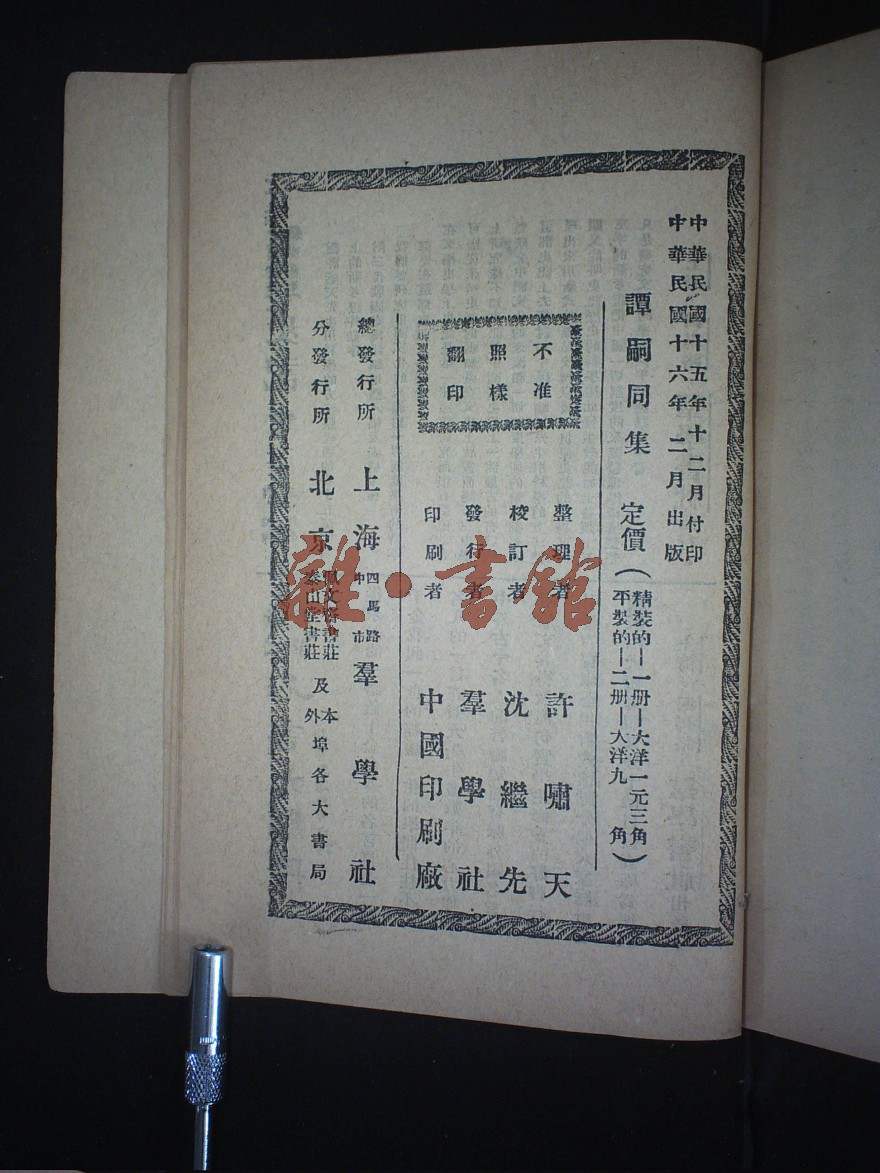 中華民國十五年十二月付印
中華民國十六年二月出版
譚嗣同集 定價(精裝的—一册—大洋一元三角
平裝的—二册—大洋九角)
不准
照樣
翻印
整理者 許嘯天
校訂者 沈繼先
發行者 羣學社
印刷者 中國印刷廠
總發行所 上海四馬路中市羣學社
分發行所 北京
書莊
泰山堂書莊
及本外埠各大書局
雜·書館